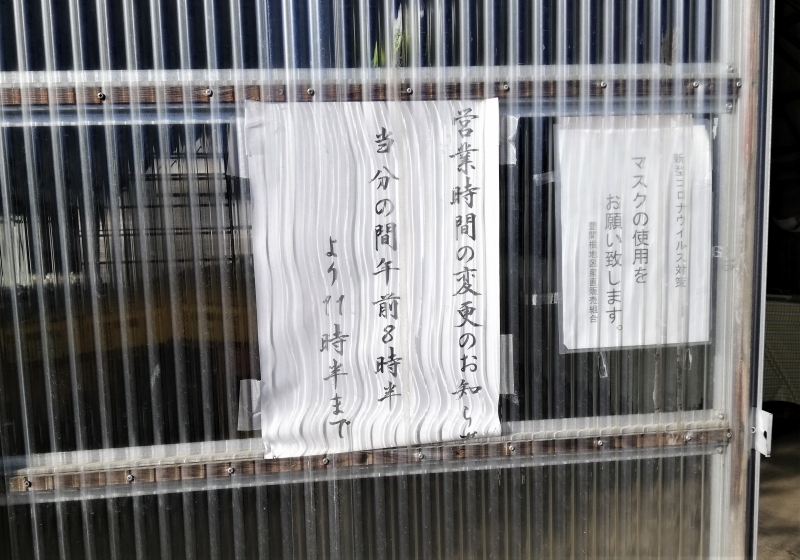 営業時間の変更のお知らせ
当分の間午前8時半
より11時半まで
新型コロナウイルス対策
マスクの使用を
お願い致します。